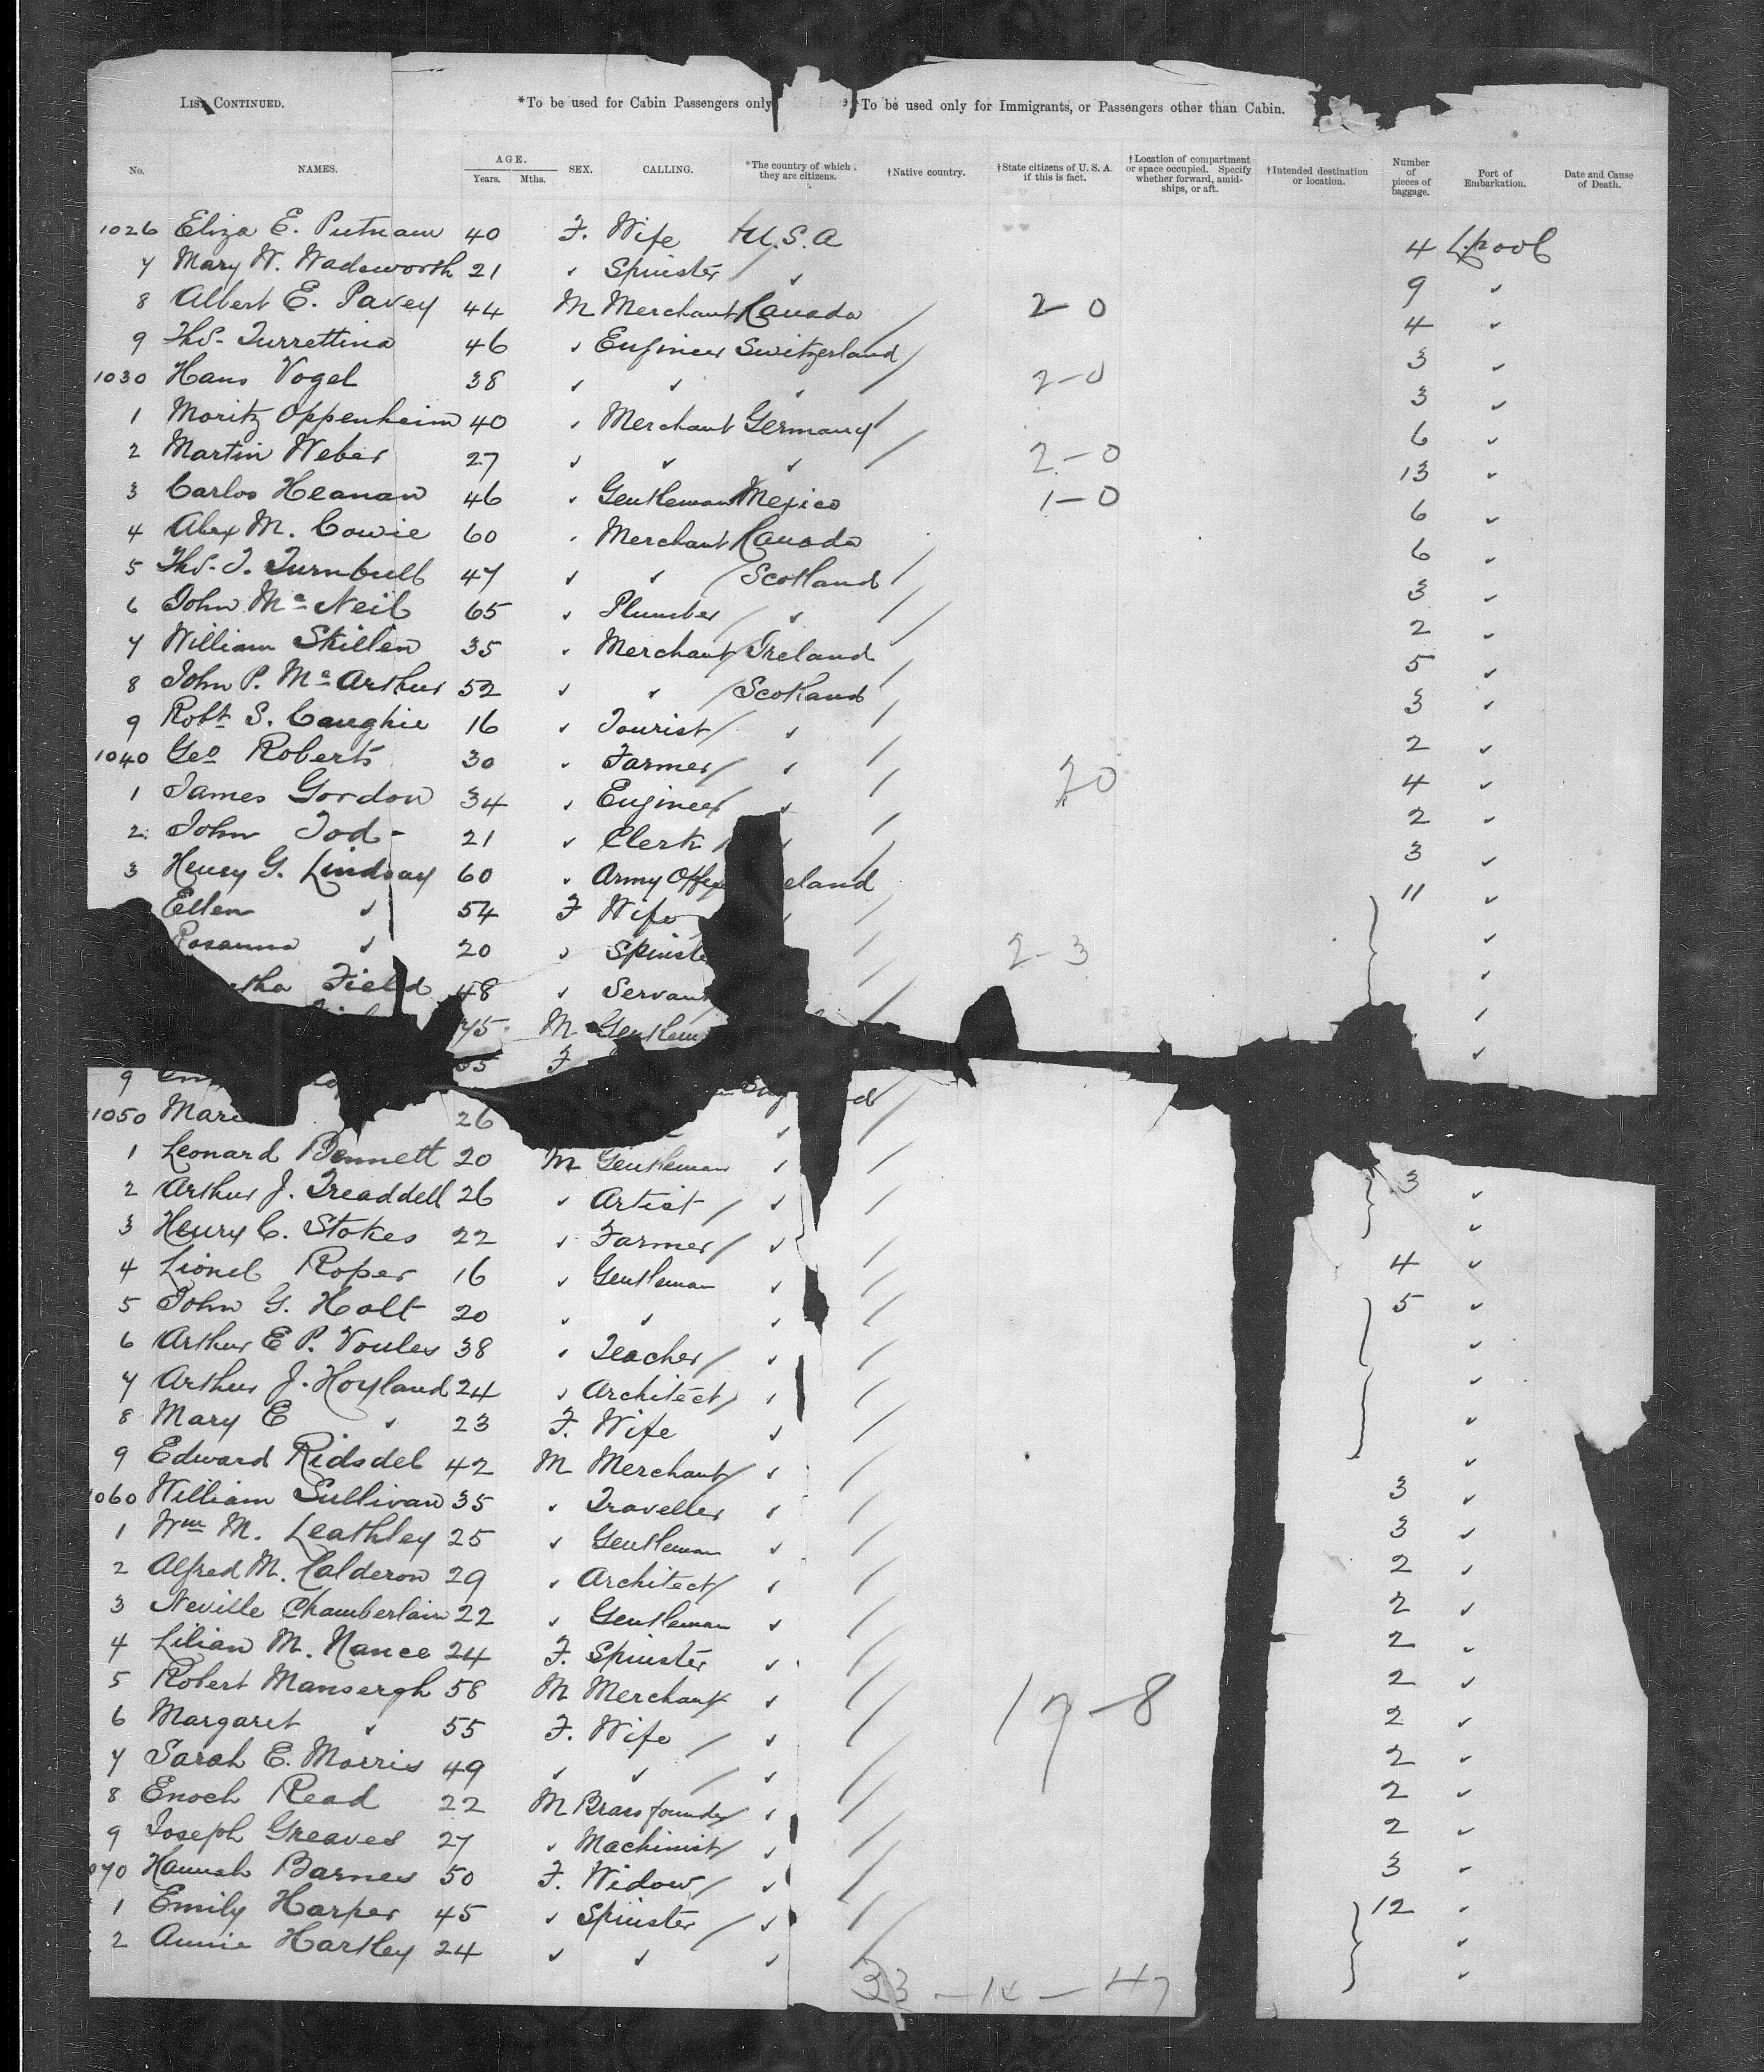 LIST CONTINUED. *To be used for Cabin Passengers only †To be used only for Immigrants, or Passengers other than Cabin.
No. NAMES. AGE. Years. Mths. SEX. CALLING. *The country of which they are citizens. †Native country. †State citizens of U. S. A. if this is fact. †Location of compartment or space occupied. Specify whether forward, amidships, or aft. †Intended destination or location. Number of pieces of baggage. Port of Embarkation. Date and Cause of Death.
1026 Eliza E. Putnam 40 F. Wife U.S.A 4 L.pool
7 Mary W. Wadsworth 21 " Spinster / " 9 "
8 Albert E. Pavey 44 M Merchant Canada / 2-0 4 "
9 Thos. Turrettina 46 " Engineer Switzerland / 3 "
1030 Hans Vogel 38 " " " / 2-0 3 "
1 Moritz Oppenheim 40 " Merchant Germany / 6 "
2 Martin Weber 27 " " " / 2-0 13 "
3 Carlos Heanan 46 " Gentleman Mexico 1-0 6 "
4 Alex M. Cowie 60 " Merchant Canada / 6 "
5 Thos. J. Turnbull 47 " " / Scotland / 3 "
6 John McNeil 65 " Plumber / " / 2 "
7 William Skillen 35 " Merchant / Ireland / 5 "
8 John P. McArthur 52 " " / Scotland / 3 "
9 Robt S. Caughie 16 " Tourist / " / 2 "
1040 Geo Roberts 30 " Farmer / " / 20 4 "
1 James Gordon 34 " Engineer / " / 2 "
2 John Tod - 21 " Clerk / " / 3 "
3 Henry G. Lindsay 60 " Army Offi eland / 11 "
Ellen " 54 F Wife " / "
Rosanna " 20 " Spinste / 2-3 "
tha Field 48 " Servant / "
75 M Gentlem "
55 F
9 d /
1050 Mari 26 " /
1 Leonard Bennett 20 M Gentleman " / 3 "
2 Arthur J. Treaddell 26 " Artist / " / "
3 Henry C. Stokes 22 " Farmer / " / 4 "
4 Lionel Roper 16 " Gentleman " / 5 "
5 John G. Holt 20 " " " / "
6 Arthur E P. Voules 38 " Teacher / " / "
7 Arthur J. Hoyland 24 " Architect / " / "
8 Mary E " 23 F. Wife " / "
9 Edward Ridsdel 42 M Merchant / " / 3 "
1060 William Sullivan 35 " Traveller " / 3 "
1 Wm M. Leathley 25 " Gentleman " / 2 "
2 Alfred M. Calderon 29 " Architect / " / 2 "
3 Neville Chamberlain 22 " Gentleman " / 2 "
4 Lilian M. Nance 24 F. Spinster " / 2 "
5 Robert Mansergh 58 M Merchant " / 17-8 2 "
6 Margaret " 55 F. Wife / " / 2 "
7 Sarah E. Morris 49 " " / " / 2 "
8 Enoch Read 22 M Brass founder / " / 2 "
9 Joseph Greaves 27 " Machinist / " / 3 "
070 Hannah Barnes 50 F. Widow / " / 12 "
1 Emily Harper 45 " Spinster / " / "
2 Annie Hartley 24 " " " / "